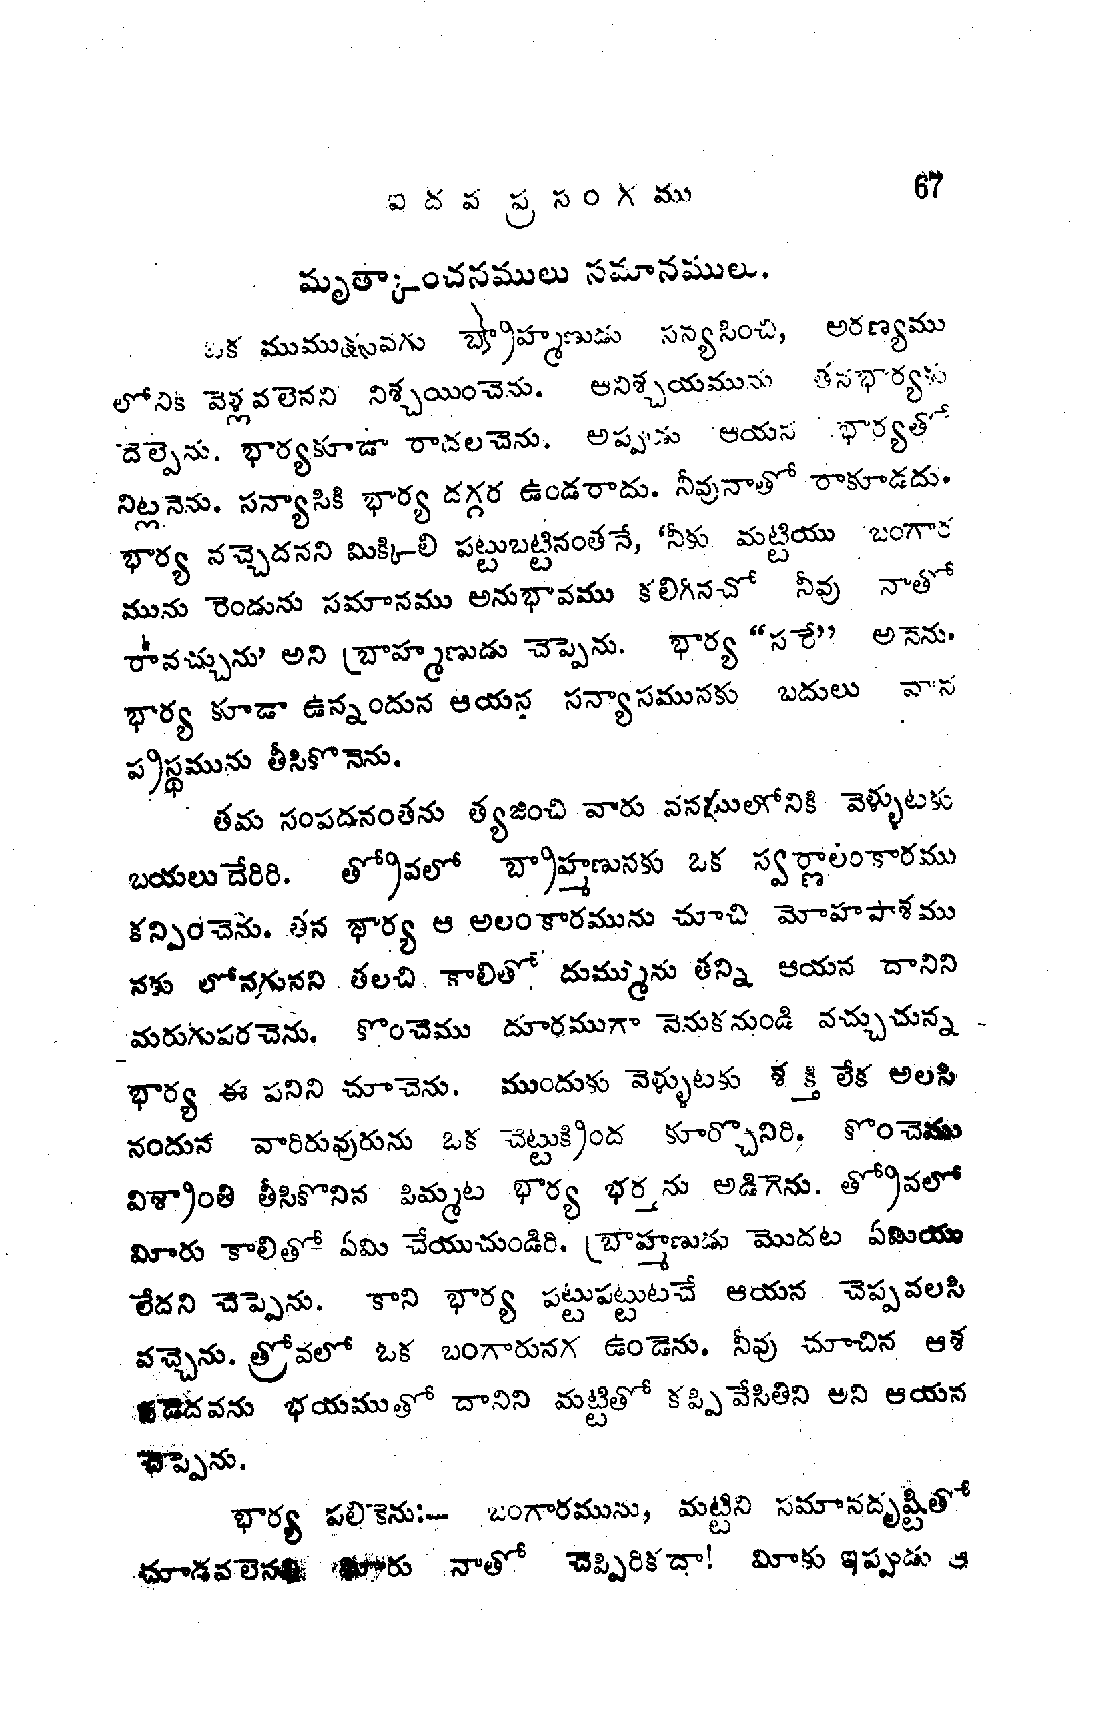 ఐదవ ప్రసంగము 67
మృత్కాంచనములు సమానములు.
ఒక ముముక్షువగు బ్రాహ్మణుడు సన్యసించి, అరణ్యము
లోనికి వెళ్లవలెనని నిశ్చయించెను. ఆనిశ్చయమును తనభార్యకు
దెల్పెను. భార్యకూడా రాదలచెను. అప్పుడు ఆయన భార్యతో
నిట్లనెను. సన్యాసికి భార్య దగ్గర ఉండరాదు. నీవునాతో రాకూడదు.
భార్య వచ్చెదనని మిక్కిలి పట్టుబట్టినంతనే, ‘నీకు మట్టియు బంగార
మును రెండును సమానము అనుభావము కలిగినచో నీవు నాతో
రావచ్చును’ అని బ్రాహ్మణుడు చెప్పెను. భార్య “సరే” అనెను.
భార్య కూడా ఉన్నందున ఆయన సన్యాసమునకు బదులు వాన
ప్రస్థమును తీసికొనెను.
తమ సంపదనంతను త్యజించి వారు వనములోనికి వెళ్ళుటకు
బయలుదేరిరి. త్రోవలో బ్రాహ్మణునకు ఒక స్వర్ణాలంకారము
కన్పించెను. తన భార్య ఆ అలంకారమును చూచి మోహపాశము
నకు లోనగునని తలచి కాలితో దుమ్మును తన్ని ఆయన దానిని
మరుగుపరచెను. కొంచెము దూరముగా వెనుకనుండి వచ్చుచున్న
భార్య ఈ పనిని చూచెను. ముందుకు వెళ్ళుటకు శక్తి లేక అలసి
నందున వారిరువురును ఒక చెట్టుక్రింద కూర్చొనిరి. కొంచెము
విశ్రాంతి తీసికొనిన పిమ్మట భార్య భర్తను అడిగెను. త్రోవలో
మీరు కాలితో ఏమి చేయుచుండిరి. బ్రాహ్మణుడు మొదట ఏమియు
లేదని చెప్పెను. కాని భార్య పట్టుపట్టుటచే ఆయన చెప్పవలసి
వచ్చెను. త్రోవలో ఒక బంగారునగ ఉండెను. నీవు చూచిన ఆశ
పడెదవను భయముతో దానిని మట్టితో కప్పివేసితిని అని ఆయన
చెప్పెను.
భార్య పలికెను:— బంగారమును, మట్టిని సమానదృష్టితో
చూడవలెనని మీరు నాతో చెప్పిరికదా! మీకు ఇప్పుడు ఆ